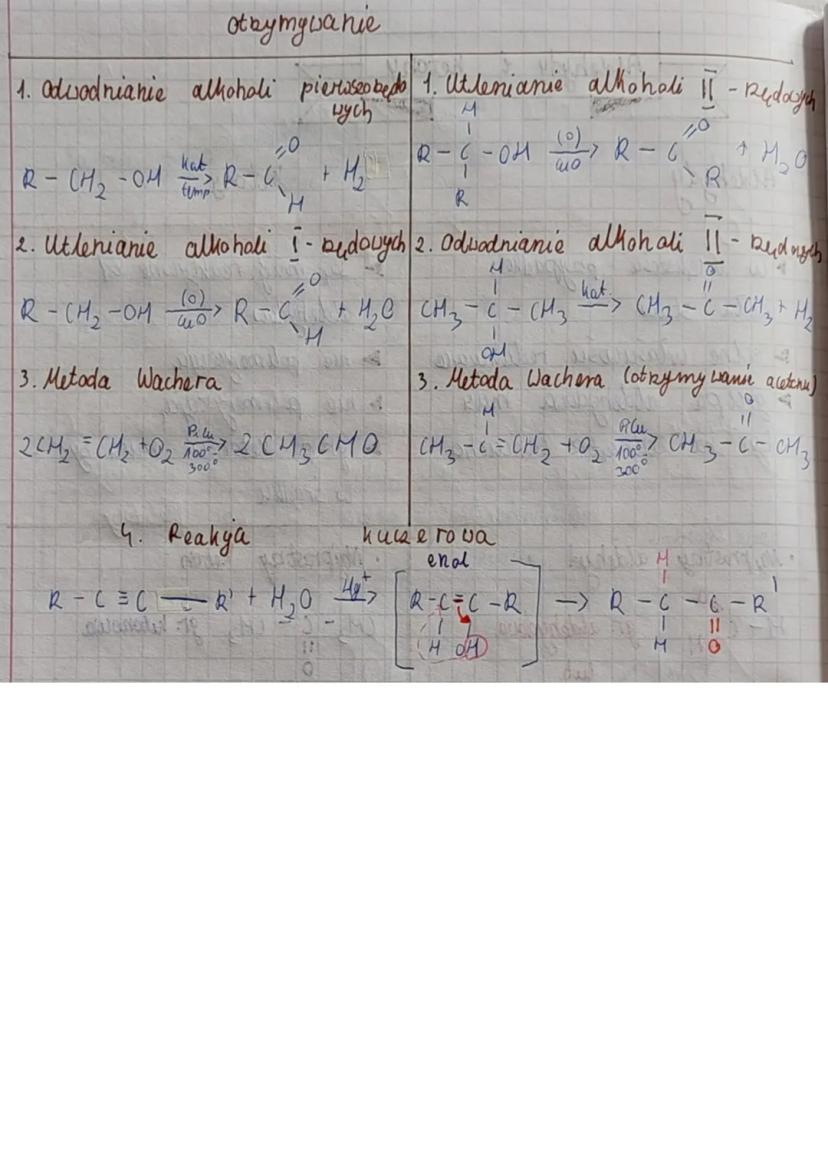 otrzymywanie
1. Odwodnianie alkoholi pierwszorzędo
wych
R - CH2 - OH kat temp → R - C =O - H + H2
2. Utlenianie alkoholi I - rzędowych
R - CH2 - OH (O) CuO → R - C =O - H + H2O
3. Metoda Wackera
2CH2 = CH2 + O2 P.Cu 100°- 300° → 2 CH3CHO
1. Utlenianie alkoholi II - rzędowych
H
R - C - OH (O) CuO → R - C =O - R + H2O
R
2. Odwodnianie alkoholi II - rzędowych
H O
CH3 - C - CH3 kat → CH3 - C - CH3 + H2
OH
3. Metoda Wackera (otrzymywanie acetonu)
H O
CH3 - C = CH2 + O2 P.Cu 100°- 300° → CH3 - C - CH3
4. Reakcja Kuczerowa
enol H
R - C ≡ C — R' + H2O Hg+ → [R - C = C - R] → R - C - C - R'
H OH H O